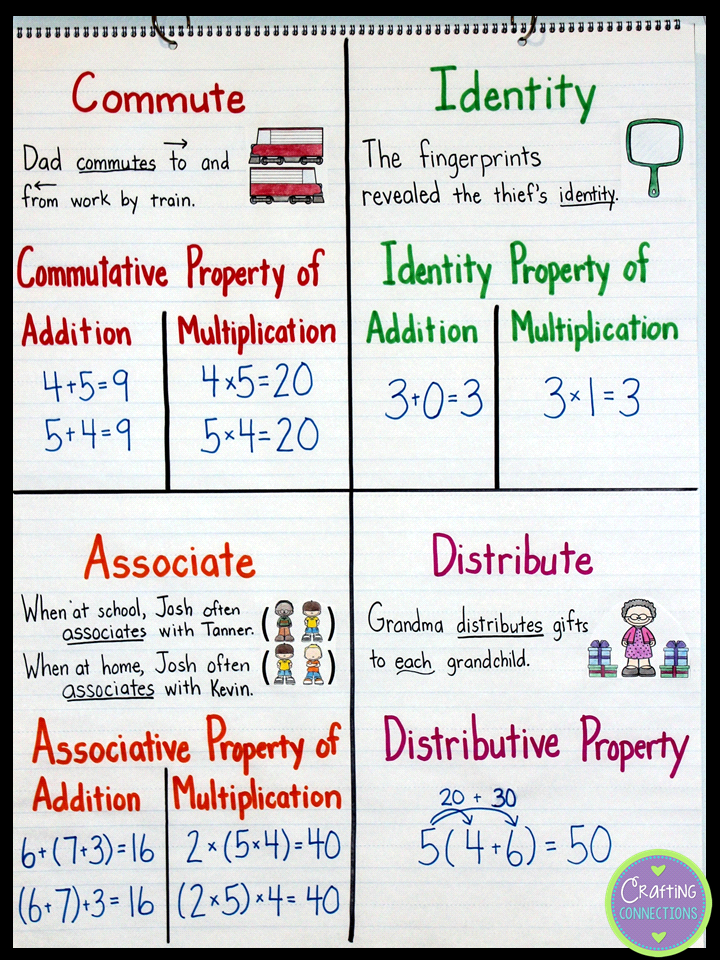 Commute
Dad commutes to and
from work by train.
Commutative Property of
Addition
4+5=9
5+4=9
Multiplication
4×5=20
5×4=20
Identity
The fingerprints
revealed the thief's identity.
Identity Property of
Addition
3+0=3
Multiplication
3×1=3
Associate
When at school, Josh often
associates with Tanner.
When at home, Josh often
associates with Kevin.
Associative Property of
Addition
6+(7+3)=16
(6+7)+3=16
Multiplication
2×(5×4)=40
(2×5)×4=40
Distribute
Grandma distributes gifts
to each grandchild.
Distributive Property
20 + 30
5(4+6)=50
CRAFTING
CONNECTIONS